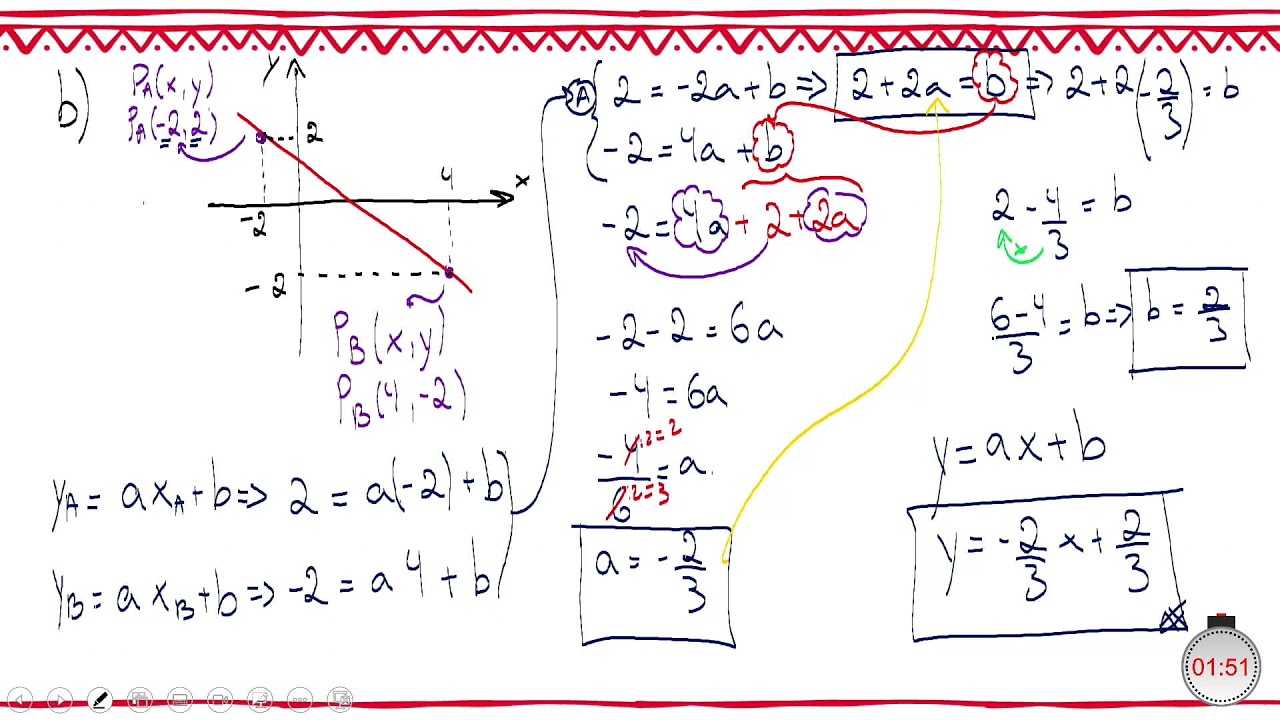 b)
y
P_A(x, y)
P_A(-2, 2)
2
4
x
-2
-2
P_B(x, y)
P_B(4, -2)
y_A = ax_A + b => 2 = a(-2) + b
y_B = ax_B + b => -2 = a 4 + b
A { 2 = -2a + b => 2 + 2a = b => 2 + 2(-2/3) = b
-2 = 4a + b
-2 = 4a + 2 + 2a
-2 - 2 = 6a
-4 = 6a
-4/6 = a
:2 = 2
:2 = 3
a = -2/3
2 - 4/3 = b
x
(6 - 4)/3 = b => b = 2/3
y = ax + b
y = -2/3 x + 2/3
01:51